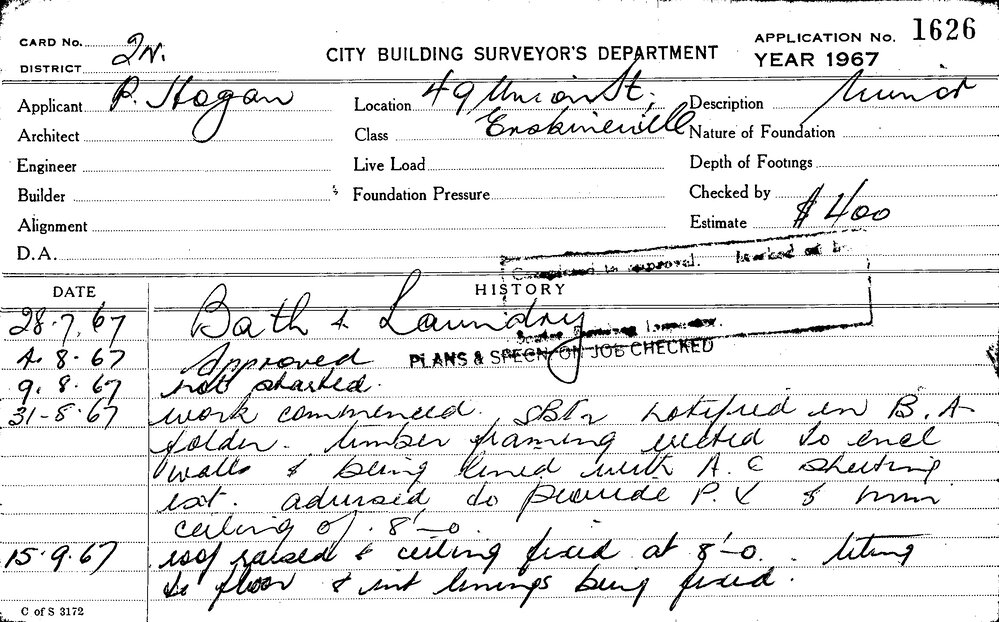 CARD No. 2W.
DISTRICT
CITY BUILDING SURVEYOR'S DEPARTMENT
APPLICATION No. 1626
YEAR 1967
Applicant P. Hogan
Location 49 Union St, Erskineville
Description Minor
Architect
Class
Nature of Foundation
Engineer
Live Load
Depth of Footings
Builder
Foundation Pressure
Checked by
Alignment
Estimate $400
D.A.
approval.
DATE
HISTORY
28.7.67 Bath & Laundry
PLANS & SPECN ON JOB CHECKED
4.8.67 Approved
9.8.67 not started.
31-8-67 work commenced. notified in B.A
folder. timber framing erected to encl
walls & being lined with A.C sheeting
ext. advised to provide P.V & min
ceiling of 8'-0.
15.9.67 roof raised & ceiling fixed at 8'-0.
to floor & int linings being fixed.
C of S 3172